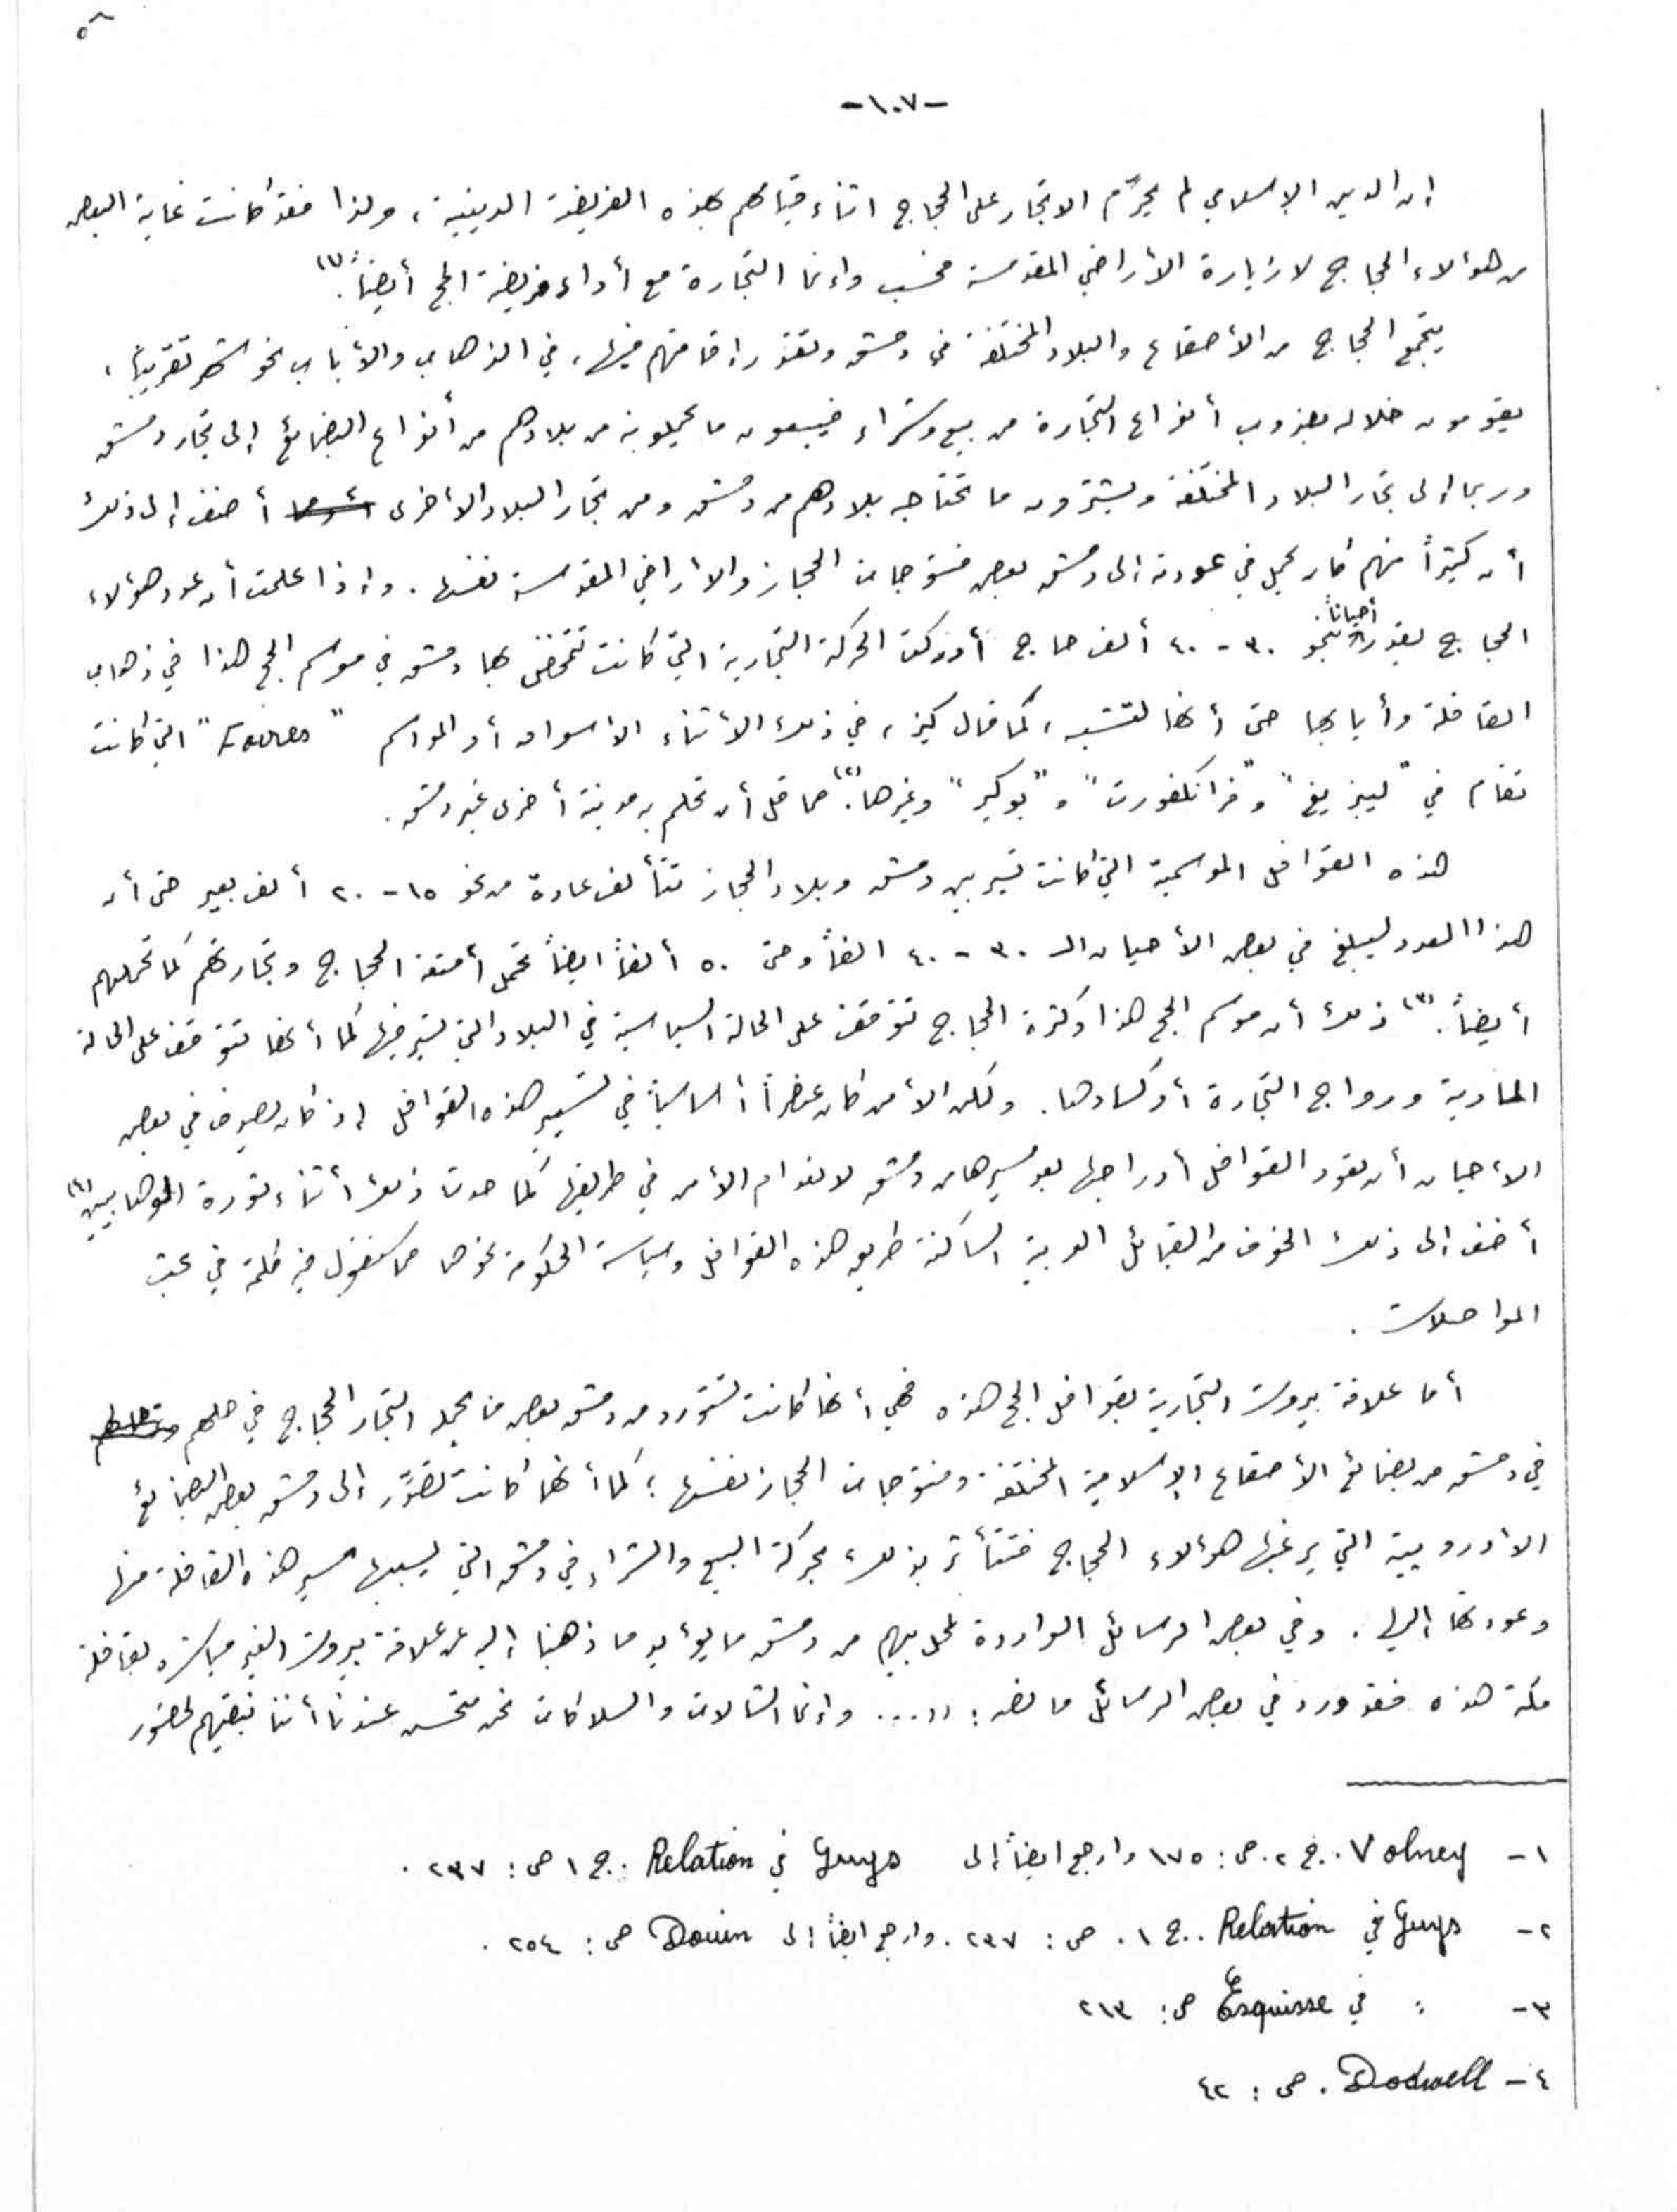 ٥٨
-١٠٧-
إن الدين الإسلامي لم يحرّم الاتجار على الحجاج اثناء قيامهم بهذه الفريضة الدينية، ولذا فقد كانت غاية البعض
من هؤلاء الحجاج لا زيارة الأراضي المقدسة فحسب وإنما التجارة مع أداء فريضة الحج أيضاً.(١)
يتجمع الحجاج من الأصقاع والبلاد المختلفة في دمشق وتقدر إقامتهم فيها، في الذهاب والأياب نحو شهر تقريباً،
يقومون خلاله بضروب أنواع التجارة من بيع وشراء فيبيعون ما يحملونه من بلادهم من أنواع البضائع إلى تجار دمشق
وربما إلى تجار البلاد المختلفة ويشترون ما تحتاجه بلادهم من دمشق ومن تجار البلاد الأخرى أضف إلى ذلك
أن كثيراً منهم كان يحمل في عودته إلى دمشق بعض منتوجات الحجاز والاراضي المقدسة نفسها. وإذا علمت أن عدد هؤلاء
الحجاج يقدر أحياناً بنحو ٣٠ - ٤٠ ألف حاج أدركت الحركة التجارية التي كانت تتمخض بها دمشق في موسم الحج هذا في ذهاب
القافلة وأيابها حتى أنها لتشبه، كما قال كيز، في ذلك الأثناء الأسواق أو المواسم "Foires" التي كانت
تقام في "ليبزيغ" و"فرانكفورت" و"بوكير" وغيرها.(٢) مما قل أن تحلم به مدينة أخرى غير دمشق.
هذه القوافل الموسمية التي كانت تسير بين دمشق وبلاد الحجاز تتألف عادة من نحو ١٥ - ٢٠ ألف بعير حتى أن
هذا العدد ليبلغ في بعض الأحيان الـ ٣٠ - ٤٠ الفاً وحتى ٥٠ ألفاً ايضاً تحمل أمتعة الحجاج وتجارتهم كما تحملهم
أيضاً.(٣) ذلك أن موسم الحج هذا وكثرة الحجاج تتوقف على الحالة السياسية في البلاد التي تسير فيها كما أنها تتوقف على الحالة
المادية ورواج التجارة أو كسادها. ولكن الأمن كان عنصراً أساسياً في تسيير هذه القوافل إذ كان يصدف في بعض
الأحيان أن تعود القوافل أدراجها بعد مسيرها من دمشق لانعدام الأمن في طريقها كما حدث ذلك أثناء ثورة الوهابيين(٤)
أضف إلى ذلك الخوف من القبائل العربية الساكنة طريق هذه القوافل وسياسة الحكومة نحوها مما سنقول فيه كلمة في بحث
المواصلات.
أما علاقة بيروت التجارية بقوافل الحج هذه فهي أنها كانت تستورد من دمشق بعض ما يحمله التجار الحجاج في
في دمشق من بضائع الأصقاع الإسلامية المختلفة ومنتوجات الحجاز نفسها؛ كما أنها كانت تصدّر إلى دمشق بعض البضائع
الأوروبية التي يرغبها هؤلاء الحجاج فتتأثر بذلك بحركة البيع والشراء في دمشق التي يسببها سير هذه القافلة منها
وعودتها إليها. وفي بعض الرسائل الواردة لمحل بيهم من دمشق ما يؤيد ما ذهبنا إليه عن علاقة بيروت الغير مباشرة بقافلة
مكة هذه فقد ورد في بعض الرسائل ما نصه: ((... وإنما الشالات والسلاكات نحن متحسن عندنا أننا نبقيهم لحضور
١- Volney. ج ٢. ص: ١٧٥ وارجع ايضاً إلى Guys في Relation. ج ١ ص: ٢٣٧.
٢- Guys في Relation. ج ١. ص: ٢٣٧. وارجع ايضاً إلى Douin ص: ٢٥٤.
٣- : في Esquisse ص: ٢١٣
٤- Dodwell. ص: ٤٢